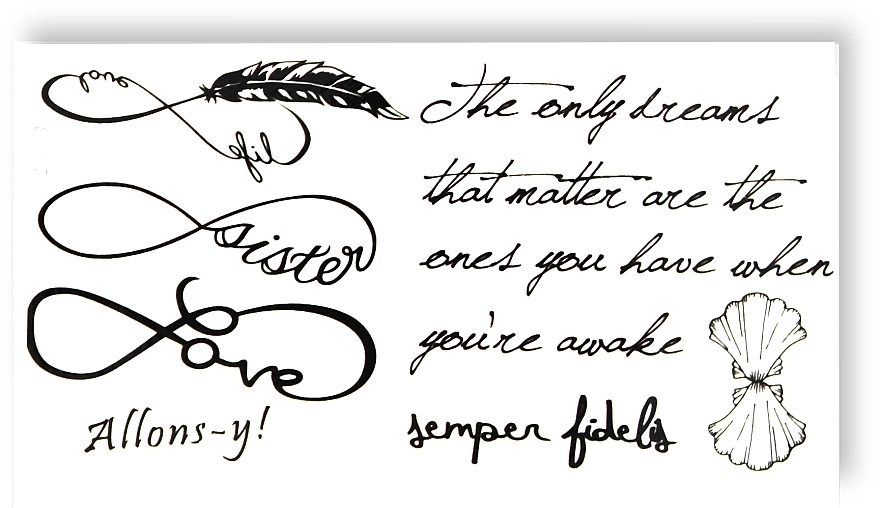 sister
love
Allons-y!
The only dreams
that matter are the
ones you have when
you're awake
semper fidelis